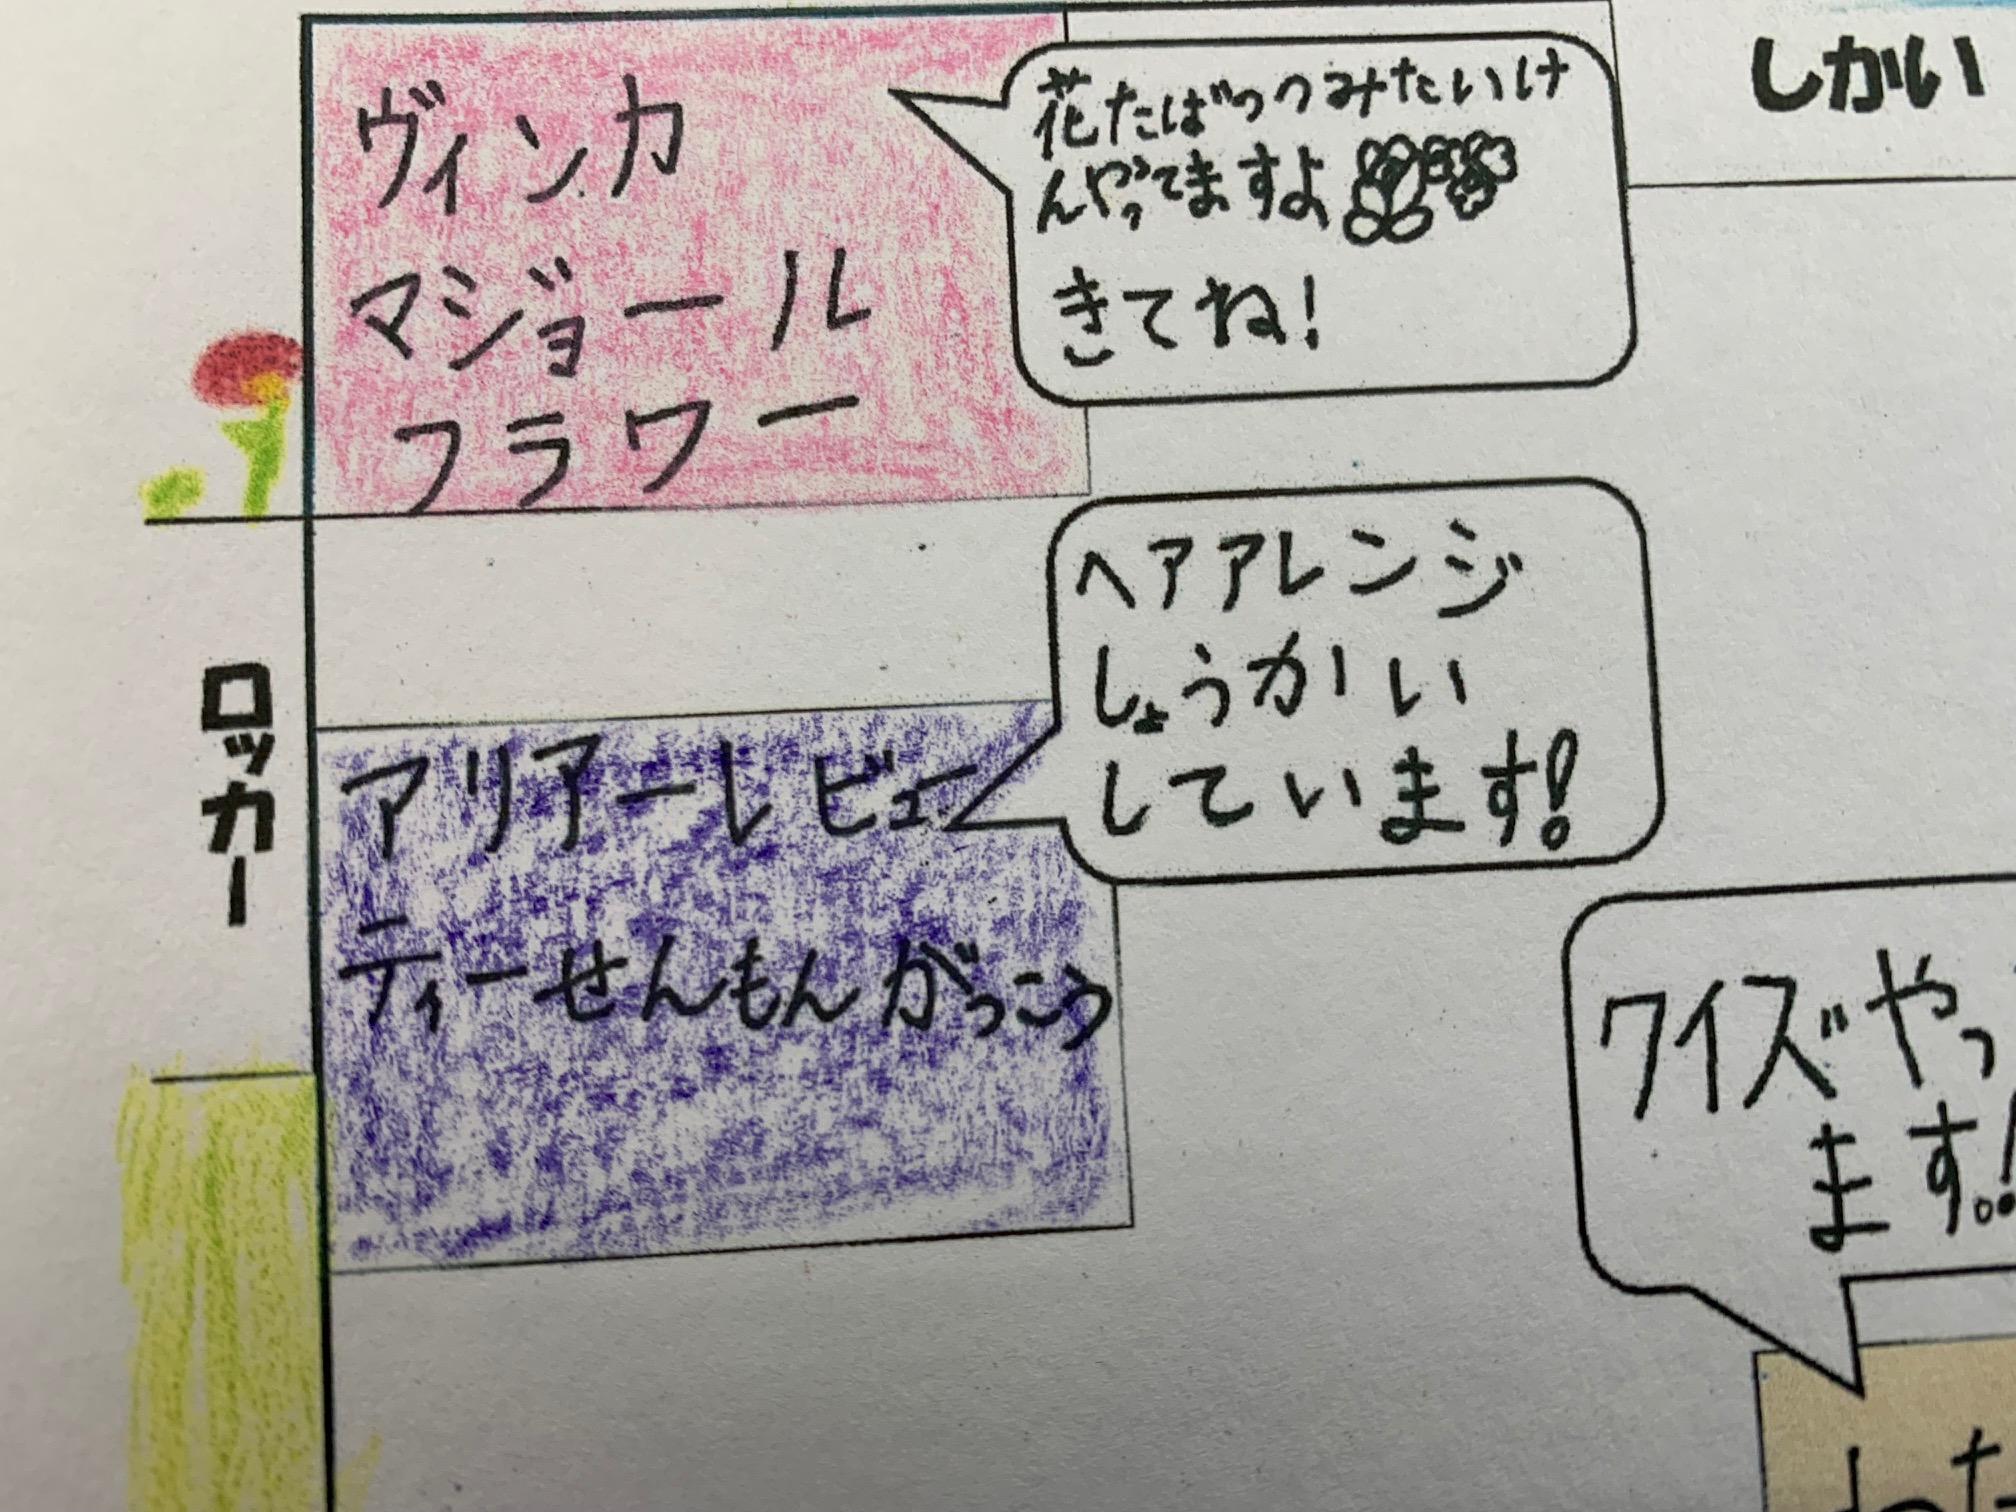 ヴィンカ
マジョール
フラワー
花たばつつみたいけ
んやってますよ
きてね!
しかい
ヘアアレンジ
しょうかい
しています!
ロッカー
アリアーレビュー
ティーせんもんがっこう
ワイズやっ
ます!